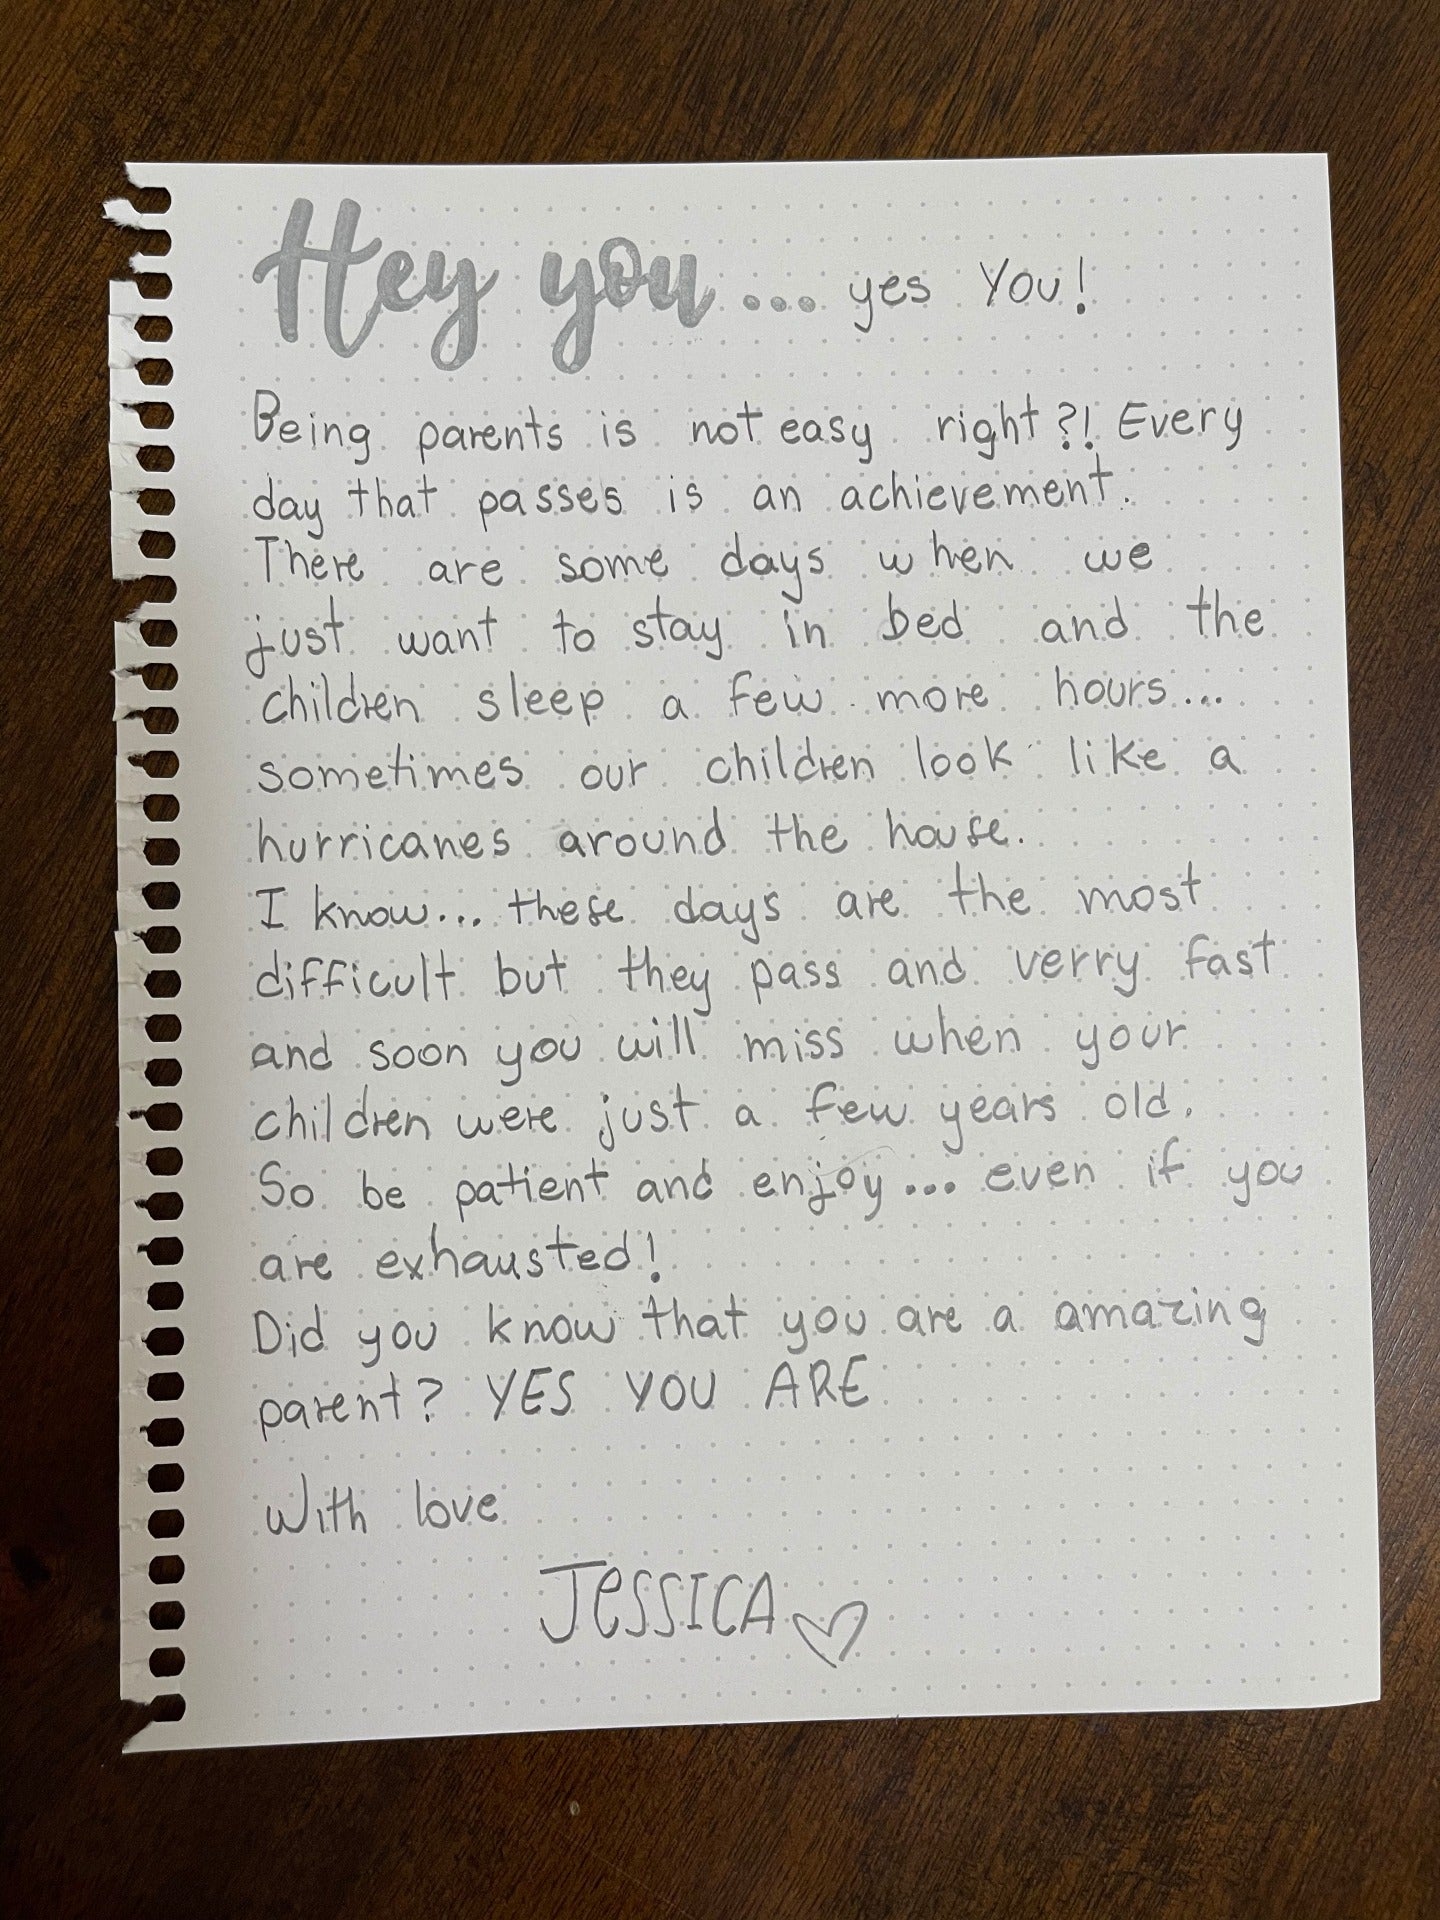 Hey you... yes You!
Being parents is not easy right?! Every
day that passes is an achievement.
There are some days when we
just want to stay in bed and the
children sleep a few more hours...
sometimes our children look like a
hurricanes around the house.
I know... these days are the most
difficult but they pass and verry fast
and soon you will miss when your
children were just a few years old.
So be patient and enjoy... even if you
are exhausted!
Did you know that you are a amazing
parent? YES YOU ARE
With love
JeSSICA ♡